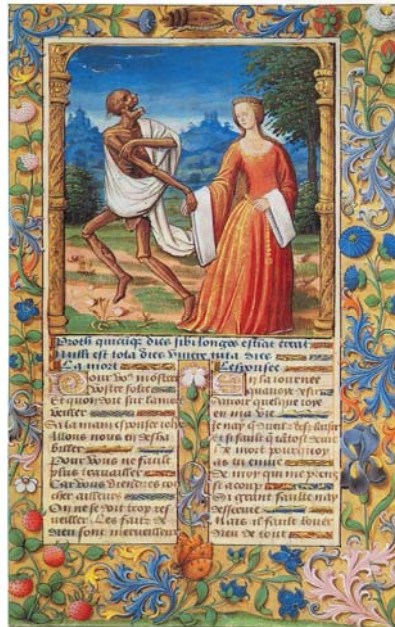 quicuq dies sibi longos estiat errat
Nulli est tota dies vivere tuta dies
La mort
Pour vo9 mostrer
vostre folie
Et quon doit sur la mort
veiller
Sa la main espousee
Allons nous en desha
biller
Pour vous ne fault
plus travailler
Car vous viendres co
cher ailleurs
On ne se doit trop res
veiller Les faitz de
dieu sont merveilleux
Lesponsee
En la iournee
quavoye desir
Davoir quelque ioye
en ma vie
Je nay q dueil
Et si fault q tatost
mort pourquoy
as tu envie
De moy qui me prens
si a coup
Si grant faulte nay
desservie
Mais il fault louer
dieu de tout